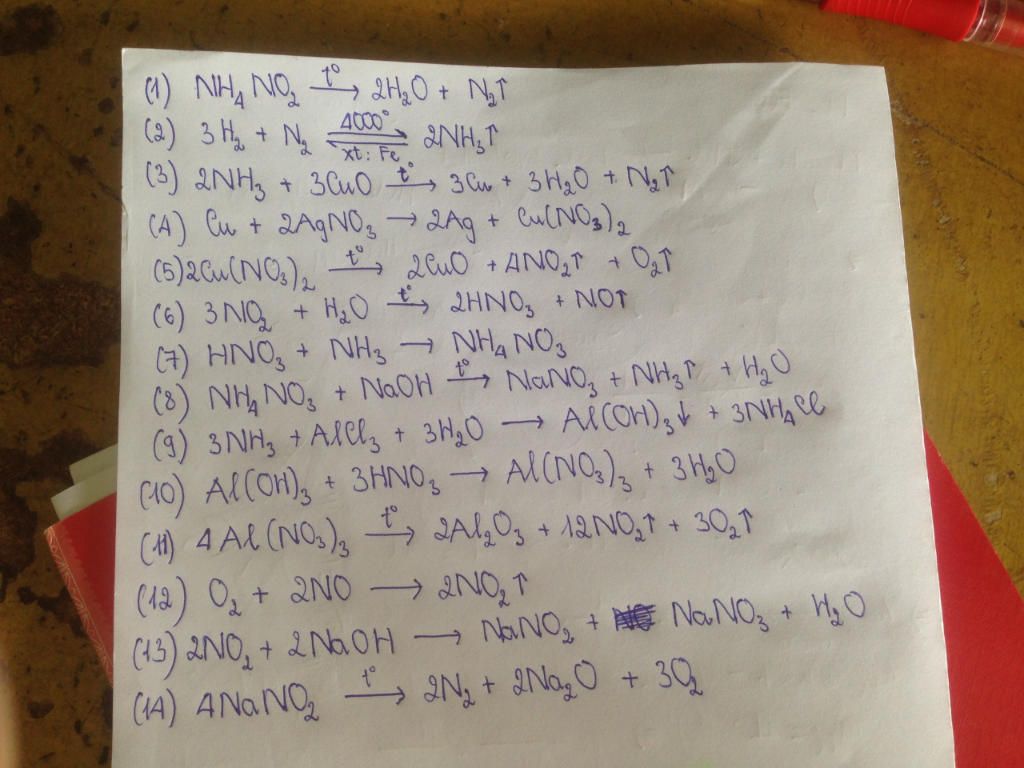 (1) NH₄NO₂ —t°→ 2H₂O + N₂↑
(2) 3H₂ + N₂ ⇌ (4000°, xt: Fe) 2NH₃↑
(3) 2NH₃ + 3CuO —t°→ 3Cu + 3H₂O + N₂↑
(4) Cu + 2AgNO₃ → 2Ag + Cu(NO₃)₂
(5) 2Cu(NO₃)₂ —t°→ 2CuO + 4NO₂↑ + O₂↑
(6) 3NO₂ + H₂O —t°→ 2HNO₃ + NO↑
(7) HNO₃ + NH₃ → NH₄NO₃
(8) NH₄NO₃ + NaOH —t°→ NaNO₃ + NH₃↑ + H₂O
(9) 3NH₃ + AlCl₃ + 3H₂O → Al(OH)₃↓ + 3NH₄Cl
(10) Al(OH)₃ + 3HNO₃ → Al(NO₃)₃ + 3H₂O
(11) 4Al(NO₃)₃ —t°→ 2Al₂O₃ + 12NO₂↑ + 3O₂↑
(12) O₂ + 2NO → 2NO₂↑
(13) 2NO₂ + 2NaOH → NaNO₂ + NaNO₃ + H₂O
(14) 4NaNO₂ —t°→ 2N₂ + 2Na₂O + 3O₂